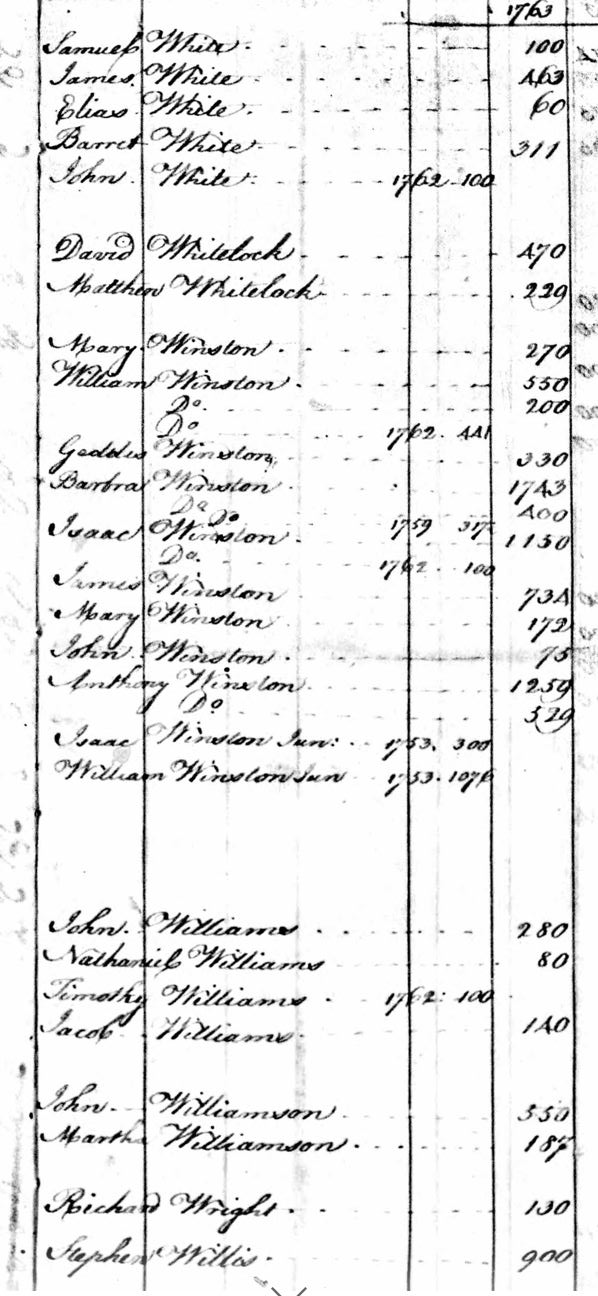 1763
Samuel White 100
James White 463
Elias White 60
Barret White 311
John White 1762 100
David Whitelock 470
Matthew Whitelock 229
Mary Winston 270
William Winston 550
Do 200
Do 1762 441
Geddes Winston 330
Barbra Winston 1743
Do Do 400
Isaac Winston 1759 317 1150
Do 1762 100
James Winston 734
Mary Winston 172
John Winston 75
Anthony Winston 1259
Do 529
Isaac Winston Jun: 1753. 300
William Winston Jun 1753. 1076
John Williams 280
Nathaniel Williams 80
Timothy Williams 1762: 100
Jacob Williams 140
John Williamson 550
Martha Williamson 187
Richard Wright 130
Stephen Willis 900